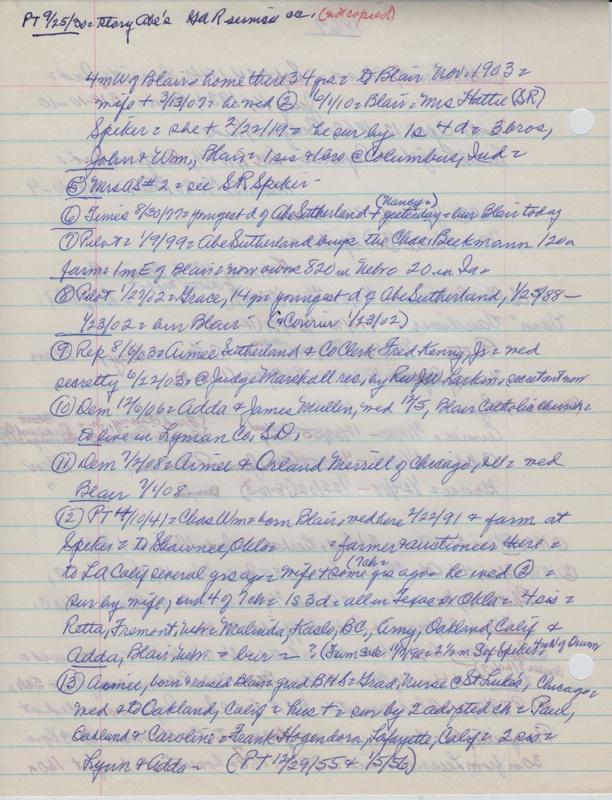 PT 9/25/30 = story Abe's GAR service etc. (not copied)
4 mW of Blair = home there 34 yrs = to Blair Nov. 1903 =
wife + 3/13/07 = he wed (2) 6/1/10 = Blair = Mrs Hattie (SR)
Spiker = she + 2/22/19 = he sur by 1s 4d = 3 bros,
John & Wm, Blair = 1 sis & 1 bro @ Columbus, Ind =
(5) Mrs AS #2 = see SR Spiker -
(6) Times 8/30/77 = youngest d of Abe Sutherland (Nancy=) + yesterday = bur Blair today
(7) Pilot = 1/9/99 = Abe Sutherland buys the Chas. Beekmann 120a
farm = 1 mE of Blair = now owns 820 in Nebr 20 in Ia =
(8) Pilot 1/22/02 = Grace, 14 youngest d of Abe Sutherland, 1/25/88 -
1/23/02 = bur Blair (& Courier 1/23/02)
(9) Rep 8/6/03 = Aimee Sutherland & Co Clerk Fred Kenny, Jr = wed
secretly 6/22/03 = @ Judge Marshall res, by Rev JW Larkin = secret out now
(10) Dem 12/6/06 = Adda & James Mullin, wed 12/5, Blair Catholic church =
to live in Lyman Co, S.D.
(11) Dem 7/2/08 = Aimee & Orland Merrill of Chicago, Ill = wed
Blair 7/1/08
(12) PT 4/10/41 = Chas Wm = born Blair = wed here 2/22/91 & farm at
Spiker = to Shawnee, Okla = farmer & auctioneer there =
to LA Calif several yrs ago = wife + some yrs ago = (7ch=) he wed (2) =
sur by wife, and 4 of 7 ch = 1s 3d = all in Texas or Okla = 4 sis =
Retta, Fremont, Nebr = Malinda, Kaslo, BC, Amy, Oakland, Calif &
Adda, Blair Nebr = bur = ? (Farm sale 2 1/2 m So of Spiker
(13) Aimee, born & raised Blair = grad BHS = Grad. Nurse @ St Luke's, Chicago =
wed & to Oakland, Calif = hus + = sur by 2 adopted ch = Paul,
Oakland & Caroline = Frank Hogendorn, Lafayette, Calif = 2 sis =
Lynn & Adda = (PT 12/29/55 & 1/5/56)